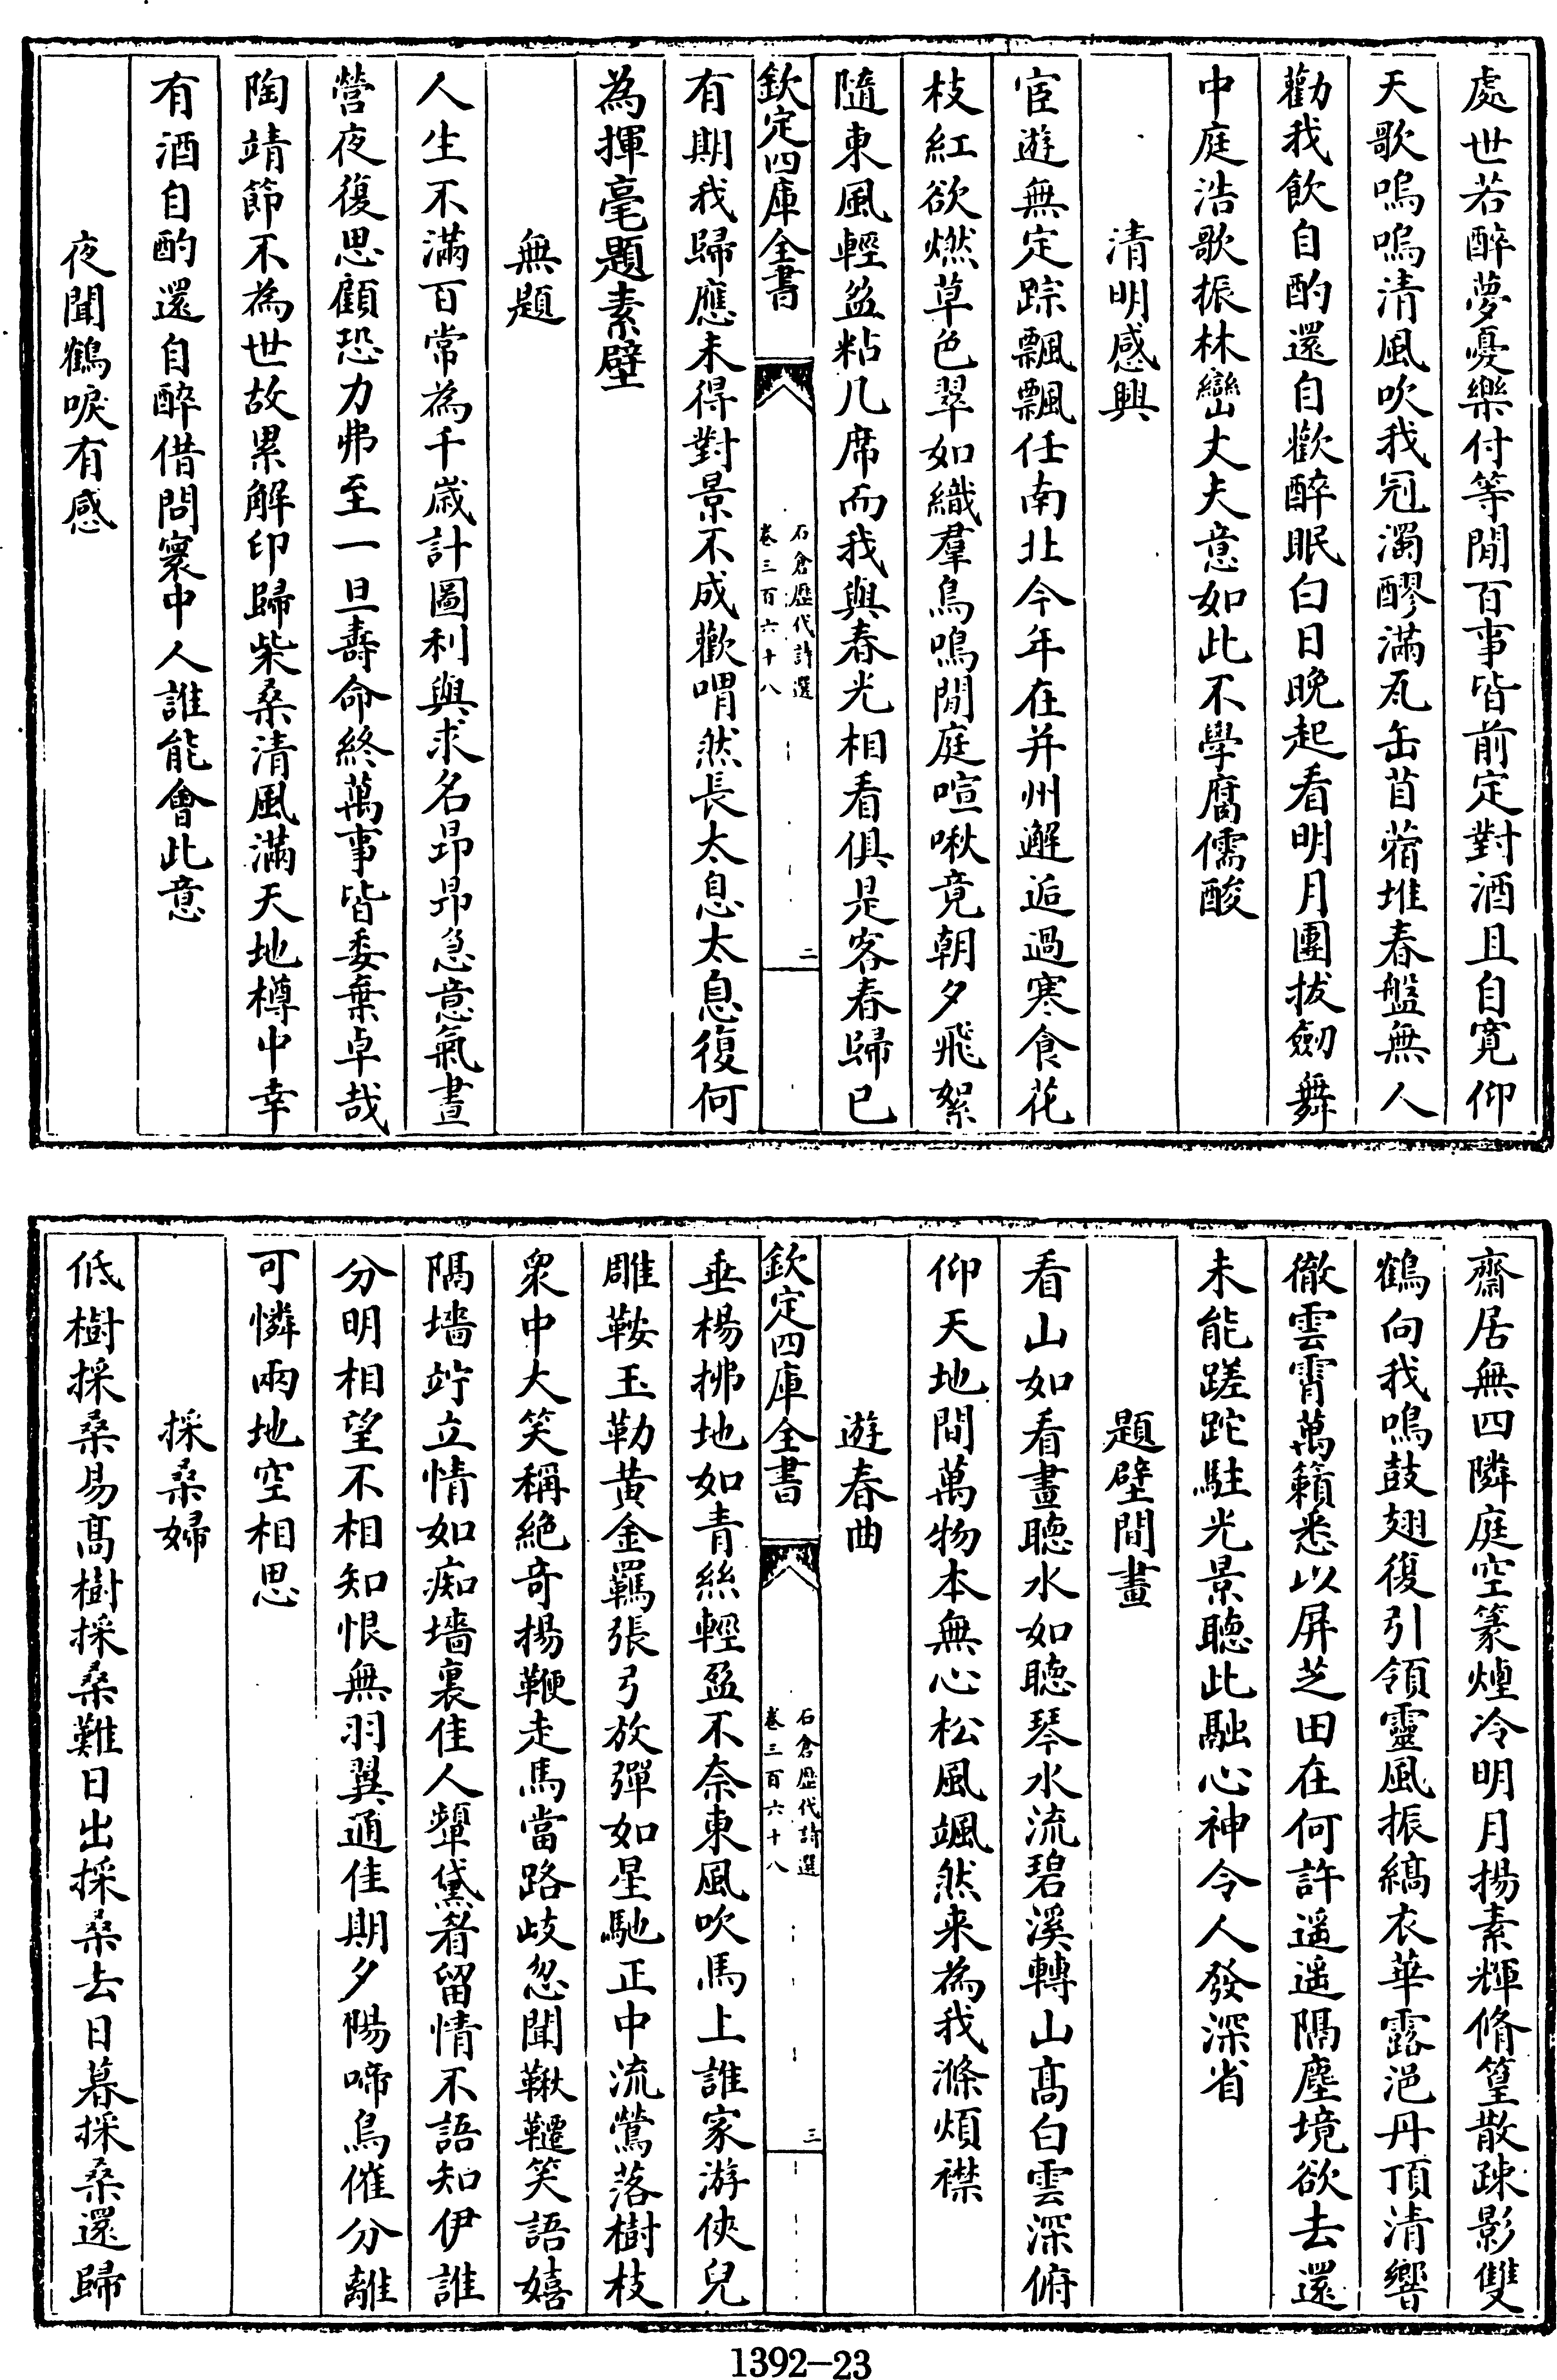 處世若醉夢憂樂付等閒百事皆前定對酒且自寛仰
天歌嗚嗚清風吹我冠濁醪滿瓦缶苜蓿堆春盤無人
勸我飲自酌還自歡醉眠白日晚起看明月團拔劒舞
中庭浩歌振林巒丈夫意如此不學腐儒酸
清明感興
宦遊無定踪飄飄任南北今年在并州邂逅過寒食花
枝紅欲燃草色翠如織羣鳥鳴閒庭喧啾竟朝夕飛絮
隨東風輕盈粘几席而我與春光相看俱是客春歸已
欽定四庫全書
石倉歷代詩選
卷三百六十八
二
有期我歸應未得對景不成歡喟然長太息太息復何
為揮毫題素壁
無題
人生不滿百常為千歲計圖利與求名昂昂急意氣晝
營夜復思顧恐力弗至一旦壽命終萬事皆委棄卓哉
陶靖節不為世故累解印歸柴桑清風滿天地樽中幸
有酒自酌還自醉借問寰中人誰能會此意
夜聞鶴唳有感
齋居無四隣庭空篆煙冷明月揚素輝脩篁散疎影雙
鶴向我鳴鼓翅復引領靈風振縞衣華露浥丹頂清響
徹雲霄萬籟悉以屏芝田在何許遥遥隔塵境欲去還
未能蹉跎駐光景聽此融心神令人發深省
題壁間畫
看山如看畫聽水如聽琴水流碧溪轉山高白雲深俯
仰天地間萬物本無心松風颯然来為我滌煩襟
遊春曲
欽定四庫全書
石倉歷代詩選
卷三百六十八
三
垂楊拂地如青絲輕盈不奈東風吹馬上誰家游俠兒
雕鞍玉勒黄金羈張弓放彈如星馳正中流鶯落樹枝
衆中大笑稱絶奇揚鞭走馬當路歧忽聞鞦韆笑語嬉
隔墻竚立情如痴墻裏佳人顰黛眉留情不語知伊誰
分明相望不相知恨無羽翼通佳期夕陽啼鳥催分離
可憐兩地空相思
採桑婦
低樹採桑易髙樹採桑難日出採桑去日暮採桑還歸
1392-23